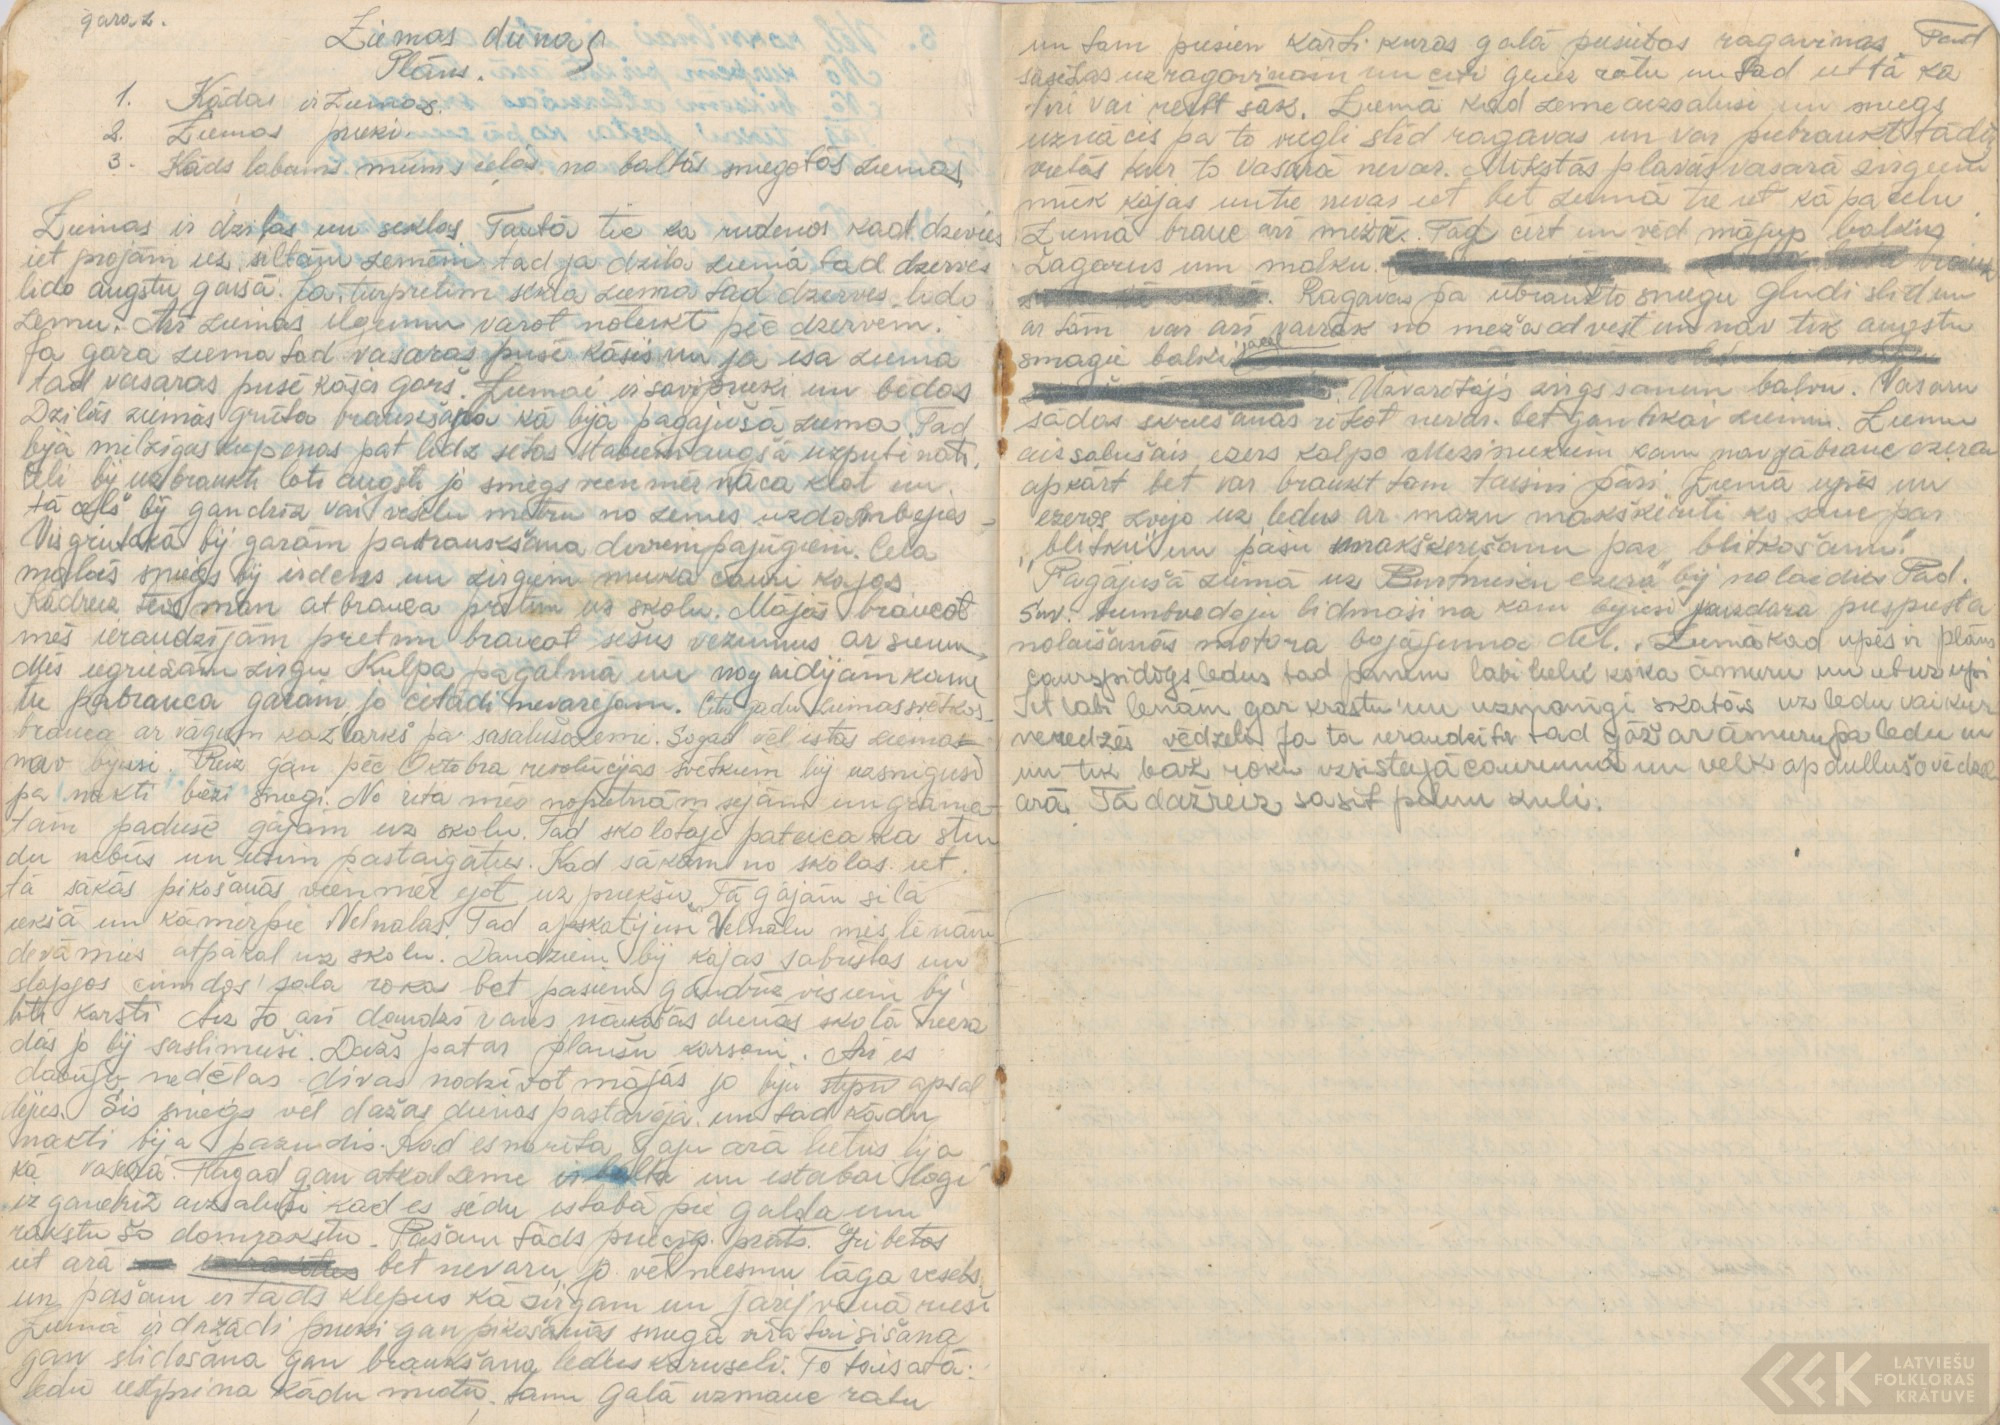 gara. z.
Ziemas diena
Plāns.
1. Kādas ir ziemas.
2. Ziemas prieki
3. Kāds labums mums ceļās no baltās sniegotās ziemas
Ziemas ir dziļas un seklas. Tautā tic ka rudeņos kad dzērves
iet projām uz siltām zemēm tad ja dziļa ziema tad dzērves
lido augstu gaisā. Ja turpretim sekla ziema tad dzērves lido
zemu. Arī ziemas ilgumu varot noteikt pēc dzērvēm.
Ja gara ziema tad vasaras pusē kāsis un ja īsa ziema
tad vasaras pusē kāsis garš. Ziemai ir savi prieki un bēdas
Dziļās ziemās grūta braukšana kā bija pagājušā ziema. Tad
bija milzīgas kupenas pat līdz sētas stabiem augšā uzputināti.
Ceļi bij uzbraukti loti augsti jo sniegs vienmēr nāca klāt un
tā ceļš bij gandrīz vai veselu metru no zemes uzdambējies
Visgrūtākā bij garām pabraukšana diviem pajūgiem. Ceļa
malās sniegs bij irdens un zirgiem muka cauri kājas
Kādreiz tēvs man atbrauca pretim uz skolu. Mājās braucot
mēs ieraudzījām pretim braucot sešus vezumus ar sienu
Mēs iegriezām zirgu Kulpa pagalmā un nogaidījām kamēr
tie pabrauca garām jo citādi nevarējām. Citu gadu ziemassvētkos
brauca ar vāģiem kaž tarkš pa sasalušo zemi. Šogad vēl īstās ziemas
nav bijusi. Reiz gan pēc Oktobra revolūcijas svētkiem bij uzsnigusi
pa nakti biezi sniegi. No rīta mēs nopurinām sejām un grāma
tām padusē gājām uz skolu. Tad skolotāja pateica ka stun
du nebūs un iesim pastaigāties. Kad sākām no skolas iet
tā sākās pikošanās vienmēr ejot uz priekšu. Tā gājām silā
iekšā un kāmēr pie Velnalas. Tad apskatijuši Velnalu mēs lēnām
devāmies atpakaļ uz skolu. Daudziem bij kājas sabristas un
slapjos cimdos sala rokas bet pašiem gandrīz visiem bij
ļoti karsti Aiz to arī daudzi vairs nākošās dienās skolā neiera
dās jo bij saslimuši. Dažs pat ar plaušu karsoni. Arī es
dabūju nedēļas divas nodzīvot mājās jo biju apsal
dējies. Šis sniegs vēl dažas dienas pastāvēja un tad kādu
nakti bija pazudis. Kad es no rīta gāju ārā lietus lija
kā vasarā. Tagad gan atkal zeme ir balta un istabai logi
ir gandrīz aizsaluši kad es sēdu istabā pie galda un
rakstu šo domrakstu. Pašam tāds priecīgs prāts. Gribētos
iet ārā bet nevaru jo vēl neesmu lāga vesels
un pašam ir tāds klepus kā zirgam un jārij vienā riešē
Ziemā ir dažādi prieki gan pikošanās sniega vīra taisīšana
gan slidošana gan braukšana ledus karuselī. To taisa tā:
ledū iestiprina kādu mietu. tam galā uzmauc ratu
un tam piesien kārti kuras galā piesietas ragaviņas. Tad
sasēžas uz ragaviņām un citi griež ratu un tad iet tā ka
turi vai reibt sāk. Ziemā kad zeme aizsalusi un sniegs
uznācis pa to viegli slīd ragavas un var piebraukt tādās
vietās kur to vasarā nevar. Mīkstās plavās vasarā zirgiem
mūk kājas un tie nevar iet bet ziemā tie iet kā pa ceļu
Ziemā brauc arī mežā. Tad cērt un ved mājup baļķus
žagarus un malku.
Ragavas pa iebraukto sniegu gludi slīd un
ar tām var arī vairāk no meža advest un nav tik augstu
smagie baļķi jāceļ
Uzvarētājs zirgs saņem balvu. Vasaru
šādas skriešanās rīkot nevar. bet gan tikai ziemu. Ziemu
aizsalušais ezers kalpo Mežiniekiem kam nav jābrauc ezeram
apkārt bet var braukt tam taisni pāri. Ziemā upēs un
ezeros zvejo uz ledus ar mazu makšķerīti ko sauc par
"blitku" un pašu makšķerēšanu par "blitkošanu".
"Pagājušā ziemā uz Burtnieku ezera" bij nolaidies Pad.
Sav. bumbvedēju lidmašīna kam bijusi jāizdara piespiesta
nolaišanās motora bojājuma dēļ. Ziemā kad upēs ir plāns
caurspīdīgs ledus tad paņem labi lielu koka āmuru un iet uz upi
Iet labi lēnām gar krastu un uzmanīgi skatās uz ledu vai kur
neredzēs vēdzeli. Ja to ieraudzīts tad gāž ar āmuru pa ledu un
un tik bāž roku izsistajā caurumā un velk apdullušo vēdzeli
ārā. Tā dažreiz sasit pilnu kuli.
LATVIEŠU
FOLKLORAS
KRĀTUVE